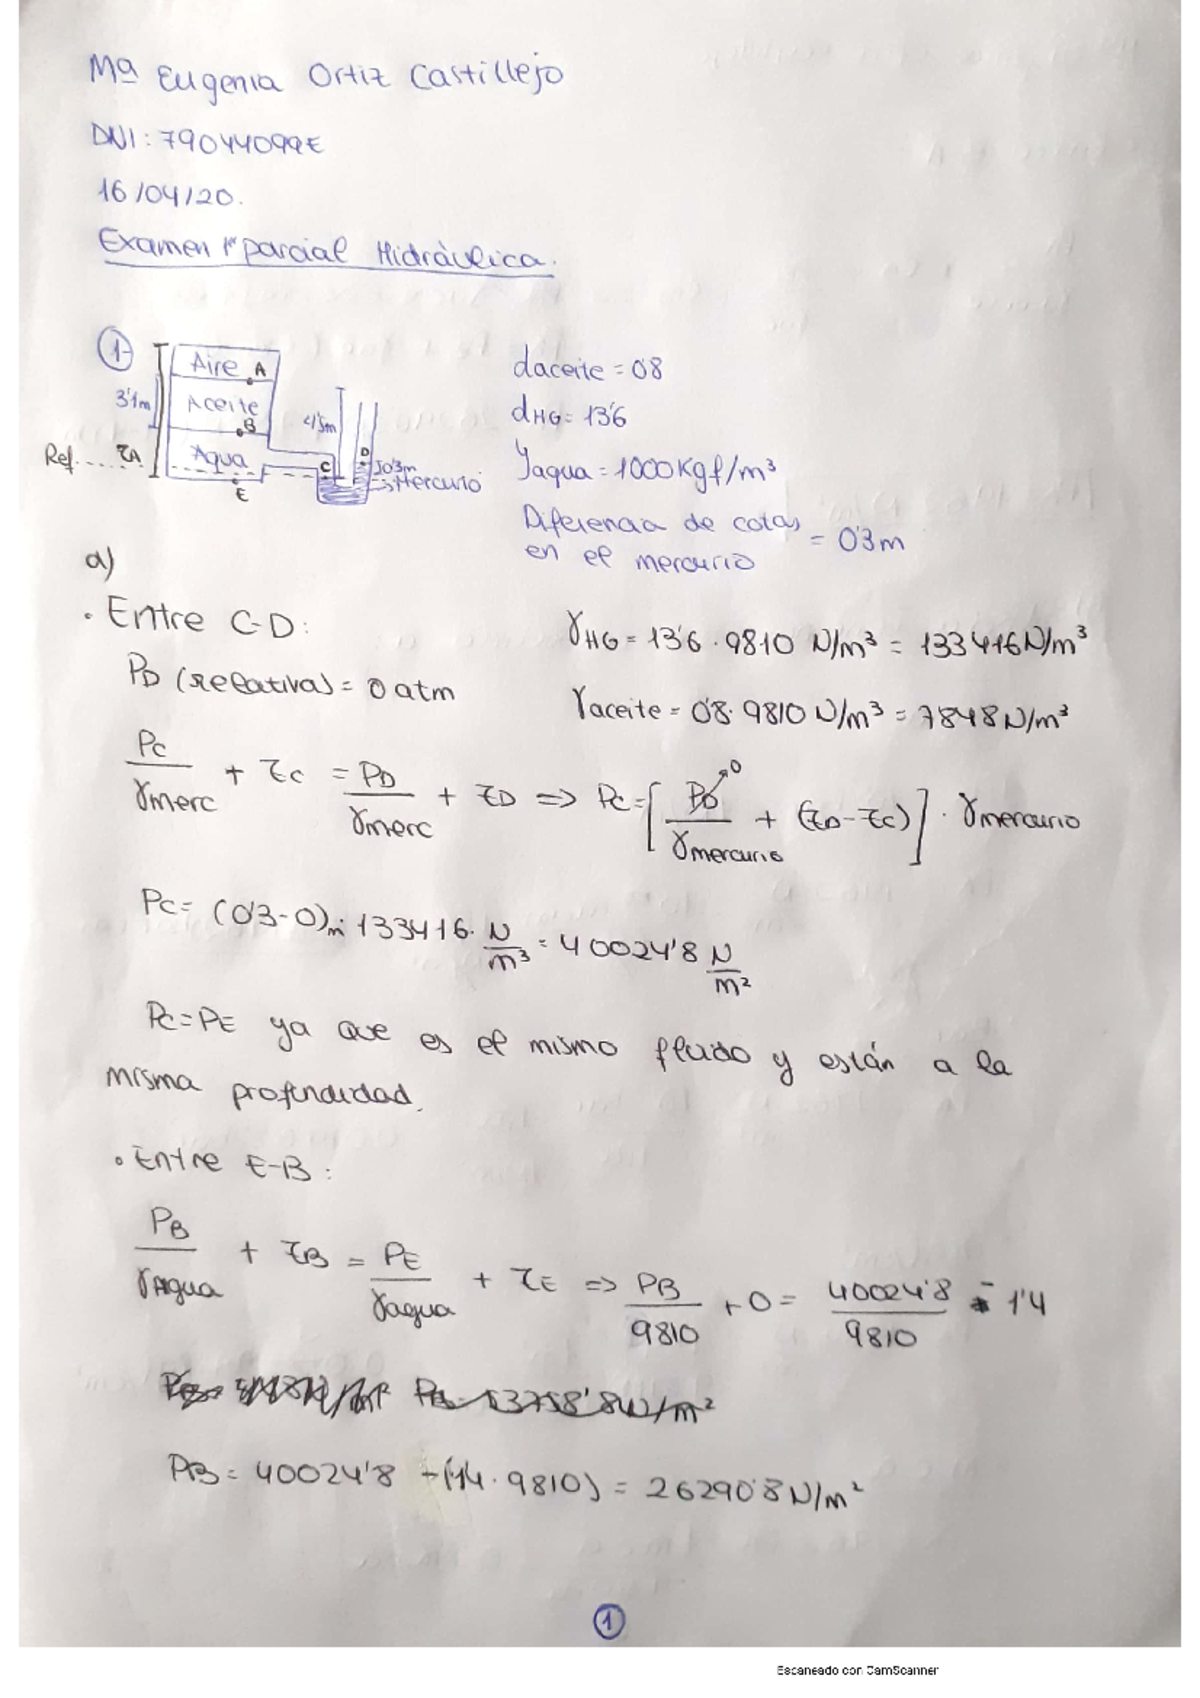 Mª Eugenia Ortiz Castillejo
DNI: 79044099E
16/04/20.
Examen 1er parcial Hidráulica.
1-
Aire A
3'1m
Aceite
B
4'5m
Ref.... ZA
Agua
C
D
0'3m
→Mercurio
E
daceite = 0'8
dHG = 13'6
γagua = 1000 Kgf/m³
Diferencia de cotas
en el mercurio = 0'3m
a)
· Entre C-D:
PD (relativa) = 0 atm
γHG = 13'6 · 9810 N/m³ = 133416 N/m³
γaceite = 0'8 · 9810 N/m³ = 7848 N/m³
Pc/γmerc + Zc = PD/γmerc + ZD => Pc = [PD/γmercurio + (ZD-Zc)] · γmercurio
0
Pc = (0'3-0)m · 133416 · N/m³ = 40024'8 N/m²
Pc = PE ya que es el mismo fluido y están a la
misma profundidad.
· Entre E-B:
PB/γAgua + ZB = PE/γagua + ZE => PB/9810 + 0 = 40024'8/9810 - 1'4
PB = 40024'8 - (1'4 · 9810) = 26290'8 N/m²
1
Escaneado con CamScanner